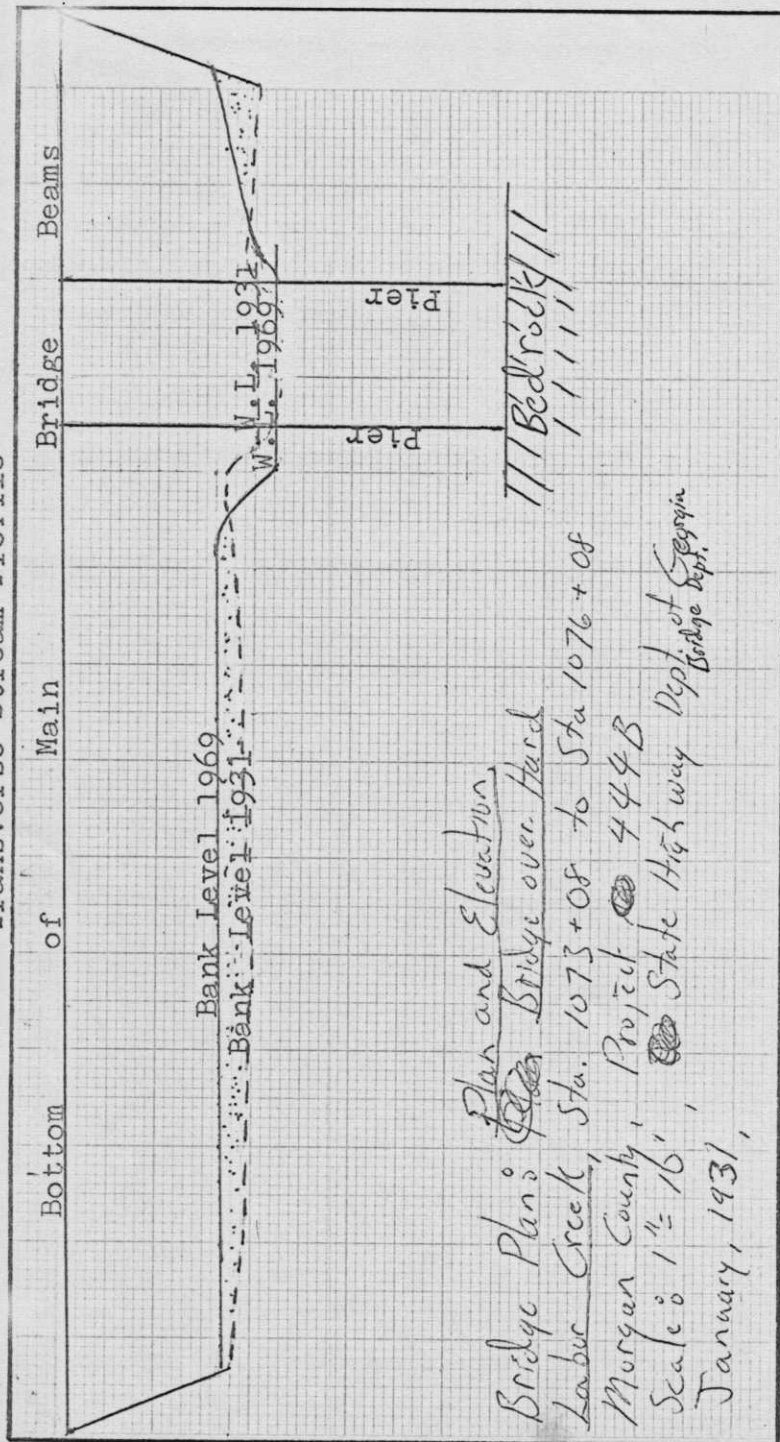 Transverse Stream Profile
Bottom of Main Bridge Beams
Bank Level 1969
Bank Level 1931
W.L. 1931
W.L. 1969
Pier
Pier
Bedrock
Bridge Plan: Plan and Elevation
Bridge over Hard
Labor Creek, Sta. 1073+08 to Sta 1076+08
Morgan County, Project 444B
Scale: 1"=16', State Highway Dept. of Georgia
Bridge Dept.
January, 1931,